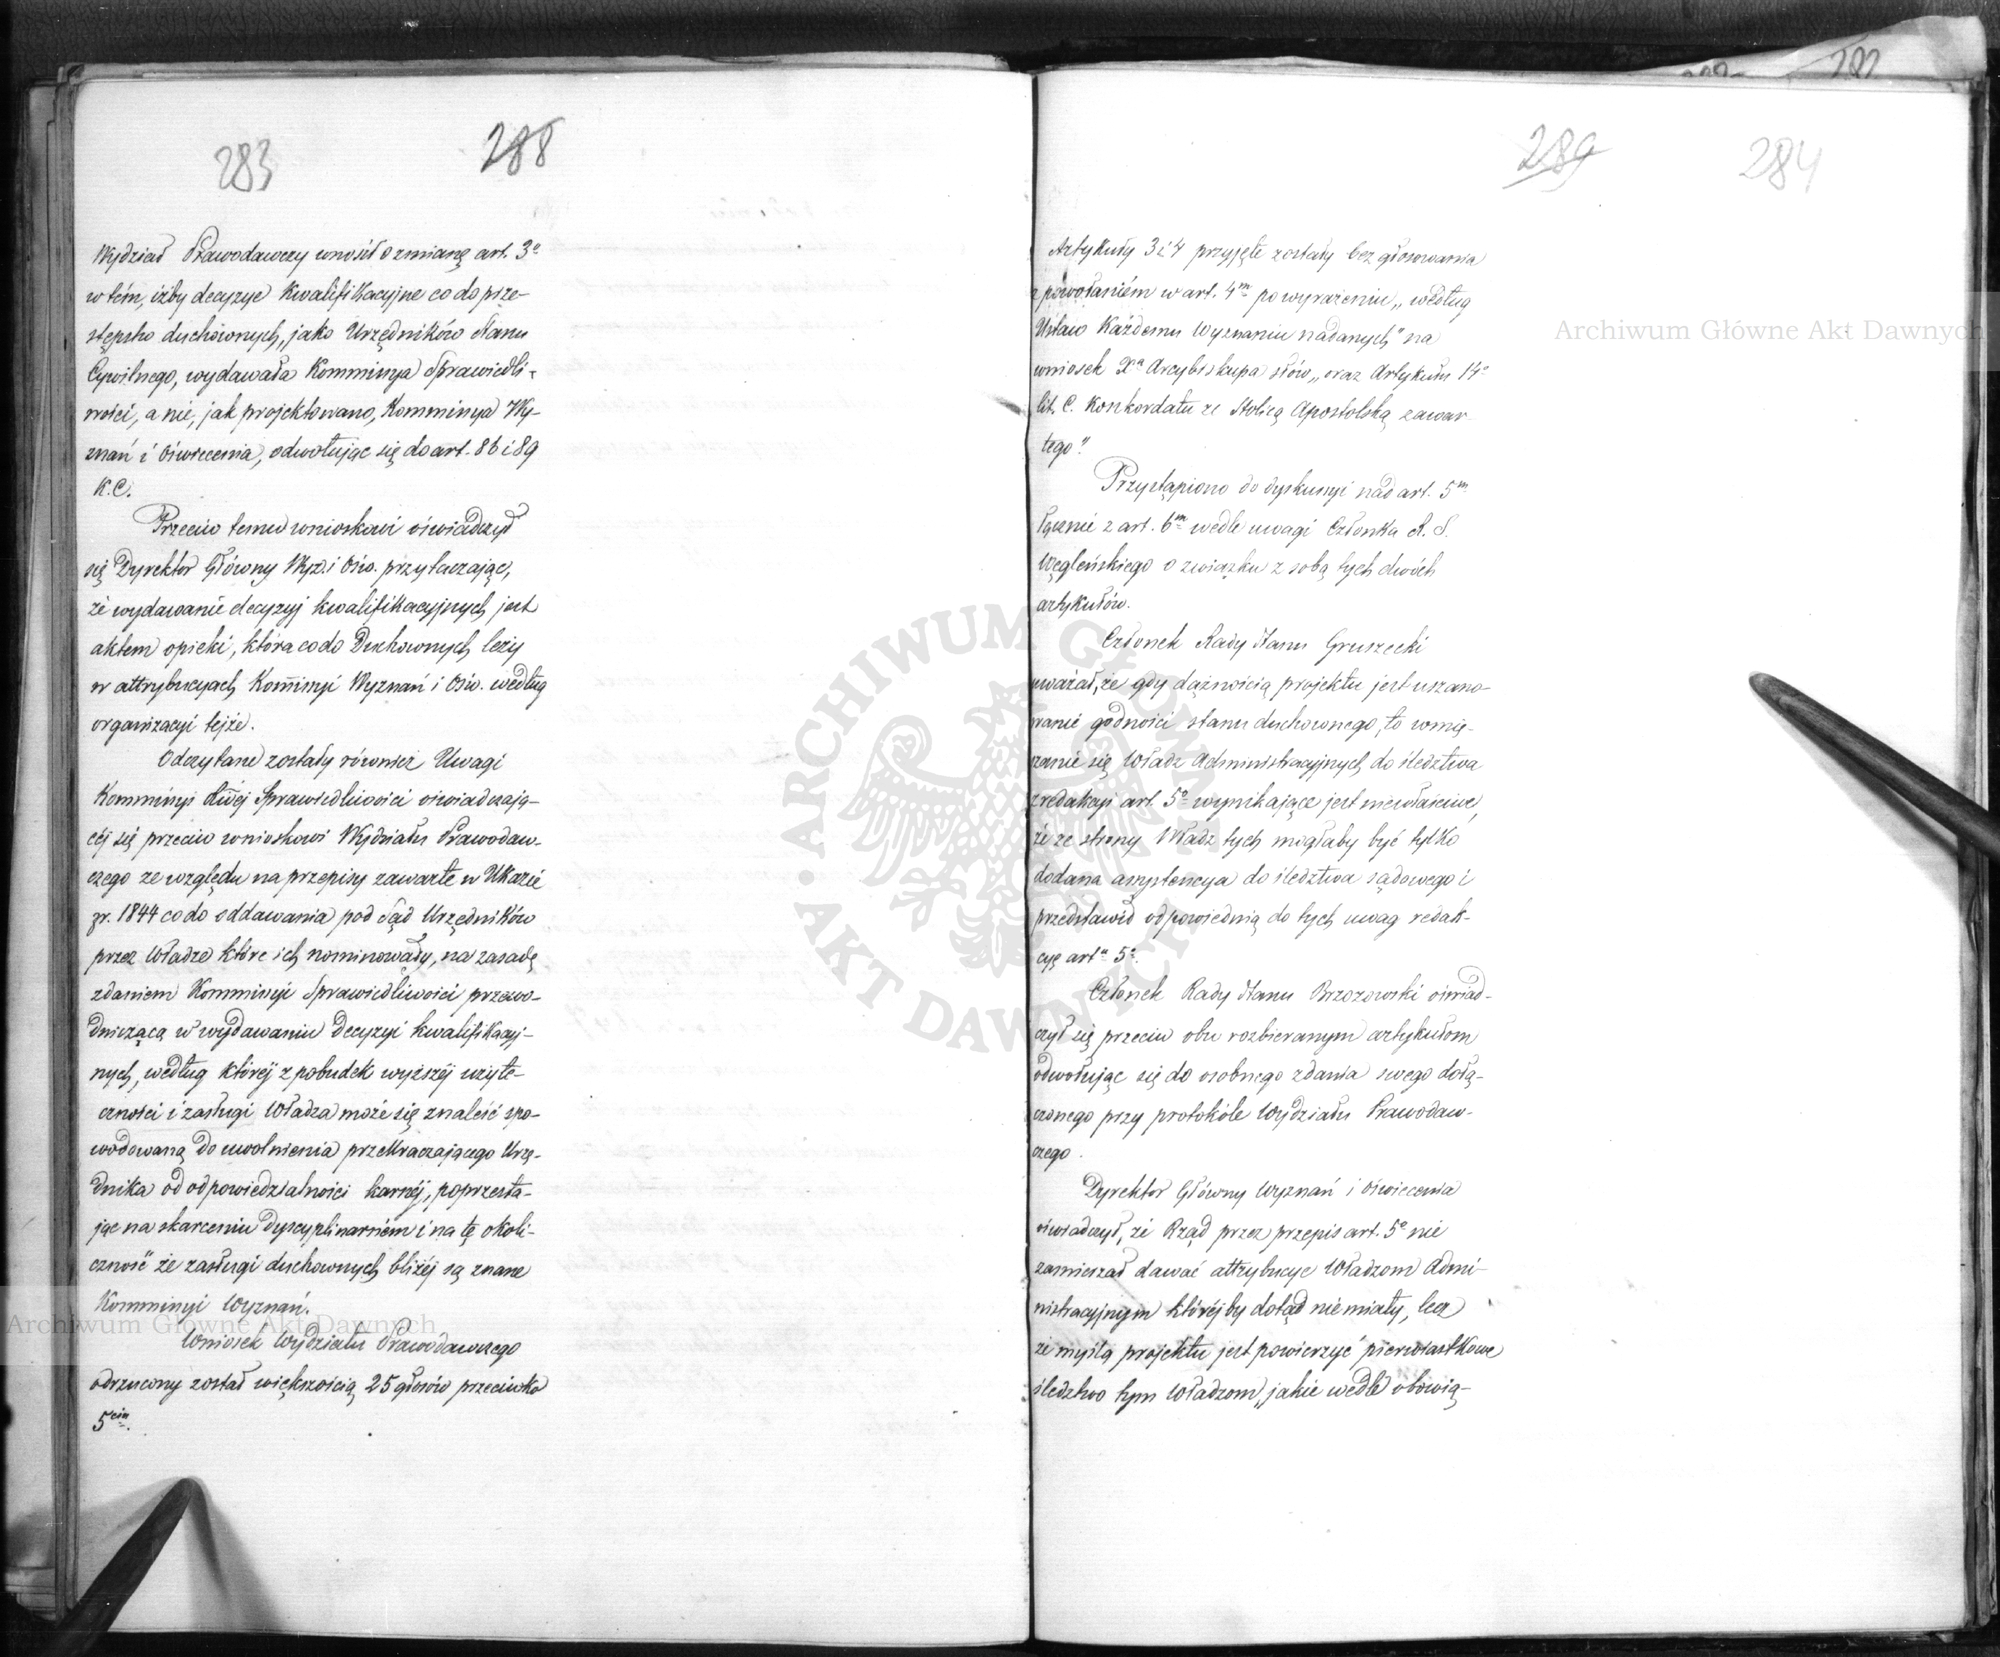 283
288
Wydział Prawodawczy wnosił o zmianę art. 3o
w tém, iżby decyzye kwalifikacyjne co do prze-
stępstw duchównych, jako Urzędników Stanu
Cywilnego, wydawała Kommissya Sprawiedli-
wości, a nie, jak projektowano, Kommissya Wy-
znań i Oświecenia, odwołując się do art. 86 i 89
K.C.
Przeciw temu wnioskowi oświadczył
się Dyrektor Główny Wyz. i Ośw. przytaczając,
że wydawanie decyzyj kwalifikacyjnych jest
aktem opieki, która co do Duchownych leży
w attrybucyach Kommissyi Wyznań i Ośw. według
organizacyi tejże.
Odczytane zostały również Uwagi
Kommissyi Sprawiedliwości oświadczają-
cej się przeciw wnioskowi Wydziału Prawodaw-
czego ze względu na przepisy zawarte w Ukazie
zr. 1844 co do oddawania pod Sąd Urzędników
przez Władze które ich nominowały, na zasadę
zdaniem Kommissyi Sprawiedliwości przewo-
dniczącą w wydawaniu Decyzyi kwalifikacyj-
nych, według któréj z pobudek wyższéj użyte-
czności i zasługi Władza może się znaleść spo-
wodowaną do uwolnienia przekraczającego Urzę-
dnika od odpowiedzialności karnéj, poprzesta-
jąc na skarceniu dyscyplinarném i na tę okoli-
czność że zasługi duchownych bliżéj są znane
Kommissyi Wyznań.
Wniosek Wydziału Prawodawczego
odrzucony został większością 25 głosów przeciwko
5ciu.
282
289
284
Artykuły 3 i 4 przyjęte zostały bez głosowania
z powołaniém w art. 4m po wyrażeniu „według
Ustaw każdemu Wyznaniu nadanych" na
wniosek Xa Arcybiskupa słów „oraz Artykułu 14o
lit. C. Konkordatu ze Stolicą Apostolską zawar-
tego".
Przystąpiono do dyskussyi nad art. 5m
łącznie z art. 6m wedle uwagi Członka R. S.
Węgleńskiego o związku z sobą tych dwóch
artykułów.
Członek Rady Stanu Gruszecki
uważał, że gdy dążnością projektu jest uszano-
wanie godności stanu duchownego, to wmię-
szanie się Władz Administracyjnych do śledztwa
z redakcyi art. 5o wynikające jest niewłaściwe,
że ze strony Władz tych mogłaby być tylko
dodana assystencya do śledztwa sądowego i
przedstawił odpowiednią do tych uwag redak-
cyę artu 5o.
Członek Rady Stanu Brzozowski oświad-
czył się przeciw obu rozbieranym artykułom
odwołując się do osobnego zdania swego dołą-
czonego przy protokóle Wydziału Prawodaw-
czego.
Dyrektor Główny Wyznań i Oświecenia
oświadczył, że Rząd przez przepis art. 5o nie
zamierzał dawać attrybucye Władzom Admi-
nistracyjnym któréjby dotąd nie miały, lecz
że myślą projektu jest powierzyć pierwiastkowe
śledztwo tym Władzom, jakie wedle obowią-
Archiwum Główne Akt Dawnych
Archiwum Główne Akt Dawnych
ARCHIWUM GŁÓWNE
AKT DAWNYCH